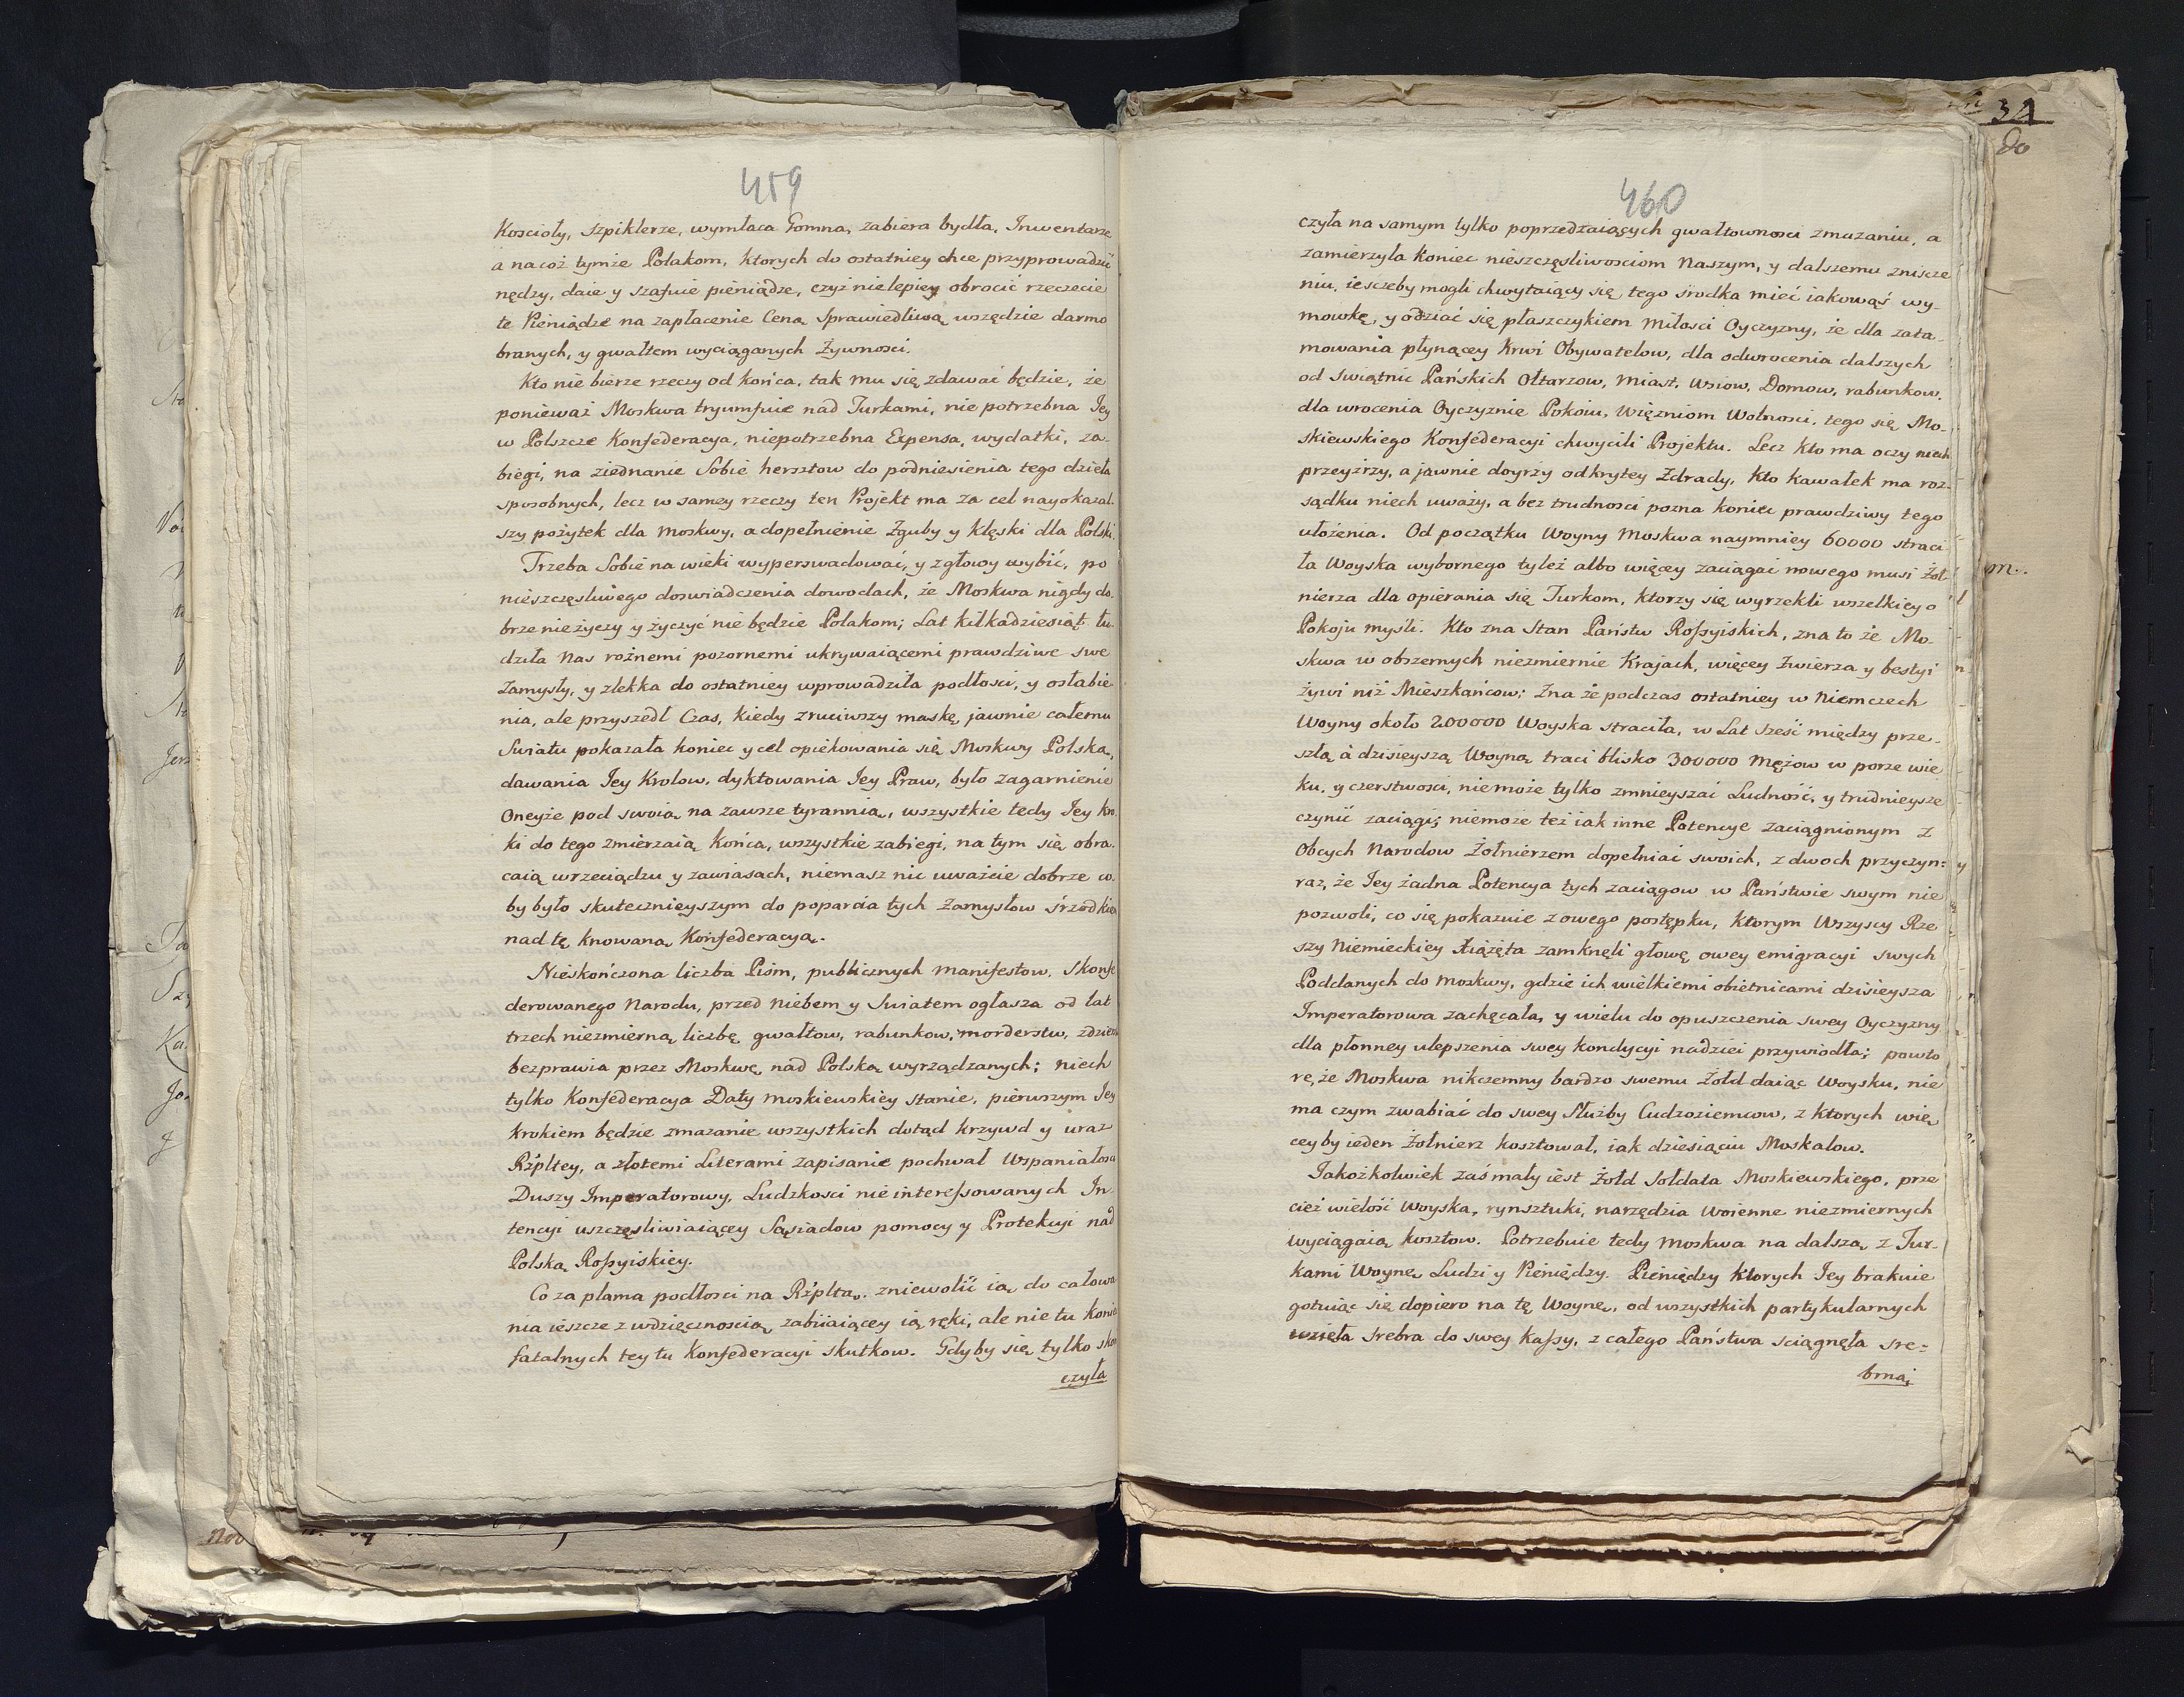 459
Kościoły, szpiklerze, wymłaca Gomna, zabiera bydła, Inwentarze
a na coż tymże Polakom, ktorych do ostatniey chce przyprowadzić
nędzy, daie y szafuie pieniądze, czyż nielepiey obrocić rzeczecie
te Pieniądze na zapłacenie Ceną Sprawiedliwą wszędzie darmo
branych, y gwałtem wyciąganych Żywnosci.
Kto nie bierze rzeczy od końca, tak mu się zdawać będzie, że
ponieważ Moskwa tryumfuie nad Turkami, nie potrzebna Jey
w Polszcze Konfederacya, niepotrzebna Expensa, wydatki, za-
biegi, na ziednanie Sobie hersztow do podniesienia tego dzieła
sposobnych, lecz w samey rzeczy ten Projekt ma za cel nayokazal-
szy pożytek dla Moskwy, a dopełnienie Zguby y Klęski dla Polski.
Trzeba Sobie na wieki wyperswadować, y z głowy wybić, po
nieszczęsliwego doswiadczenia dowodach, że Moskwa nigdy do-
brze nie życzy y życzyć nie będzie Polakom; Lat kilkadziesiąt łu-
dziła Nas rożnemi pozornemi ukrywaiącemi prawdziwe swe
Zamysły, y zlekka do ostatniey wprowadziła podłosci, y osłabie-
nia, ale przyszedł Czas, kiedy zruciwszy maskę, jawnie całemu
Swiatu pokazała koniec y cel opiekowania się Moskwy Polską,
dawania Jey Krolow, dyktowania Jey Praw, było zagarnienie
Oneyże pod swoią na zawsze tyrannią, wszystkie tedy Jey kro
ki do tego zmierzaią Końca, wszystkie zabiegi, na tym się obra-
caią wrzeciądzu y zawiasach, niemasz nic uważcie dobrze co-
by było skutecznieyszym do poparcia tych Zamysłow śrzodkiem
nad tę knowaną Konfederacyą.
Nieskończona liczba Pism, publicznych manifestow, Skonfe
derowanego Narodu, przed Niebem y Swiatem ogłasza od lat
trzech niezmierną liczbę gwałtow, rabunkow, morderstw, zdzierstw
bezprawia przez Moskwę nad Polską wyrządzanych; niech
tylko Konfederacya Daty moskiewskiey stanie, pierwszym Jey
krokiem będzie zmazanie wszystkich dotąd krzywd y uraz
Rżpltey, a złotemi Literami zapisanie pochwał Wspaniałosci
Duszy Imperatorowy, Ludzkosci nie interessowanych In-
tencyi uszczęsliwiaiącey Sąsiadow pomocy y Protekcyi nad
Polską Rossyiskiey.
Co za plama podłosci na Rżpltą, zniewolić ią do całowa
nia ieszcze z wdzięcznoscią zabiiaiącey ią ręki, ale nie tu koniec
fatalnych tey tu Konfederacyi skutkow. Gdyby się tylko skoń
czyła
460
czyła na samym tylko poprzedzaiących gwałtownosci zmazaniu, a
zamierzyła Koniec nieszczęsliwosciom Naszym, y dalszemu znisze
niu, iesczeby mogli chwytaiący się tego środka mieć iakowąś wy-
mowkę, y odziać się płaszczykiem miłosci Oyczyzny, że dla zata-
mowania płynącey Krwi Obywatelow, dla odwrocenia dalszych
od Swiątnic Pańskich Ołtarzow, Miast, Wsiow, Domow, rabunkow,
dla wrocenia Oyczyznie Pokoiu, Więzniom Wolnosci, tego się Mo-
skiewskiego Konfederacyi chwycili Projektu. Lecz kto ma oczy niech
przeyźrzy, a jawnie doyrzy odkrytey Zdrady, kto kawałek ma roz-
sądku niech uważy, a bez trudnosci pozna koniec prawdziwy tego
ułożenia. Od początku Woyny Moskwa naymniey 60000 straci
ła Woyska wybornego tyleż albo więcey zaciągać nowego musi Żoł-
nierza dla opierania się Turkom, ktorzy się wyrzekli wszelkiego
Pokoju mysli. Kto zna Stan Państw Rossyiskich, zna to że Mo-
skwa w obszernych niezmiernie Krajach, więcey Zwierza y bestyi
żywi niż Mieszkańcow; Zna że podczas ostatniey w Niemczech
Woyny około 200000 Woyska straciła, w Lat szesć między prze-
szłą à dzisieyszą Woyną traci blisko 300000 Mężow w porze wie
ku, y czerstwosci, nie może tylko zmnieyszać Ludność, y trudnieysze
czynić zaciągi; niemoże też iak inne Potencye zaciągnionym z
Obcych Narodow Żołnierzem dopełniać swoich, z dwoch przyczyn:
raz, że Jey żadna Potencya tych zaciągow w Państwie swym nie
pozwoli, co się pokazuie z owego postępku, ktorym Wszyscy Rze
szy Niemieckiey Xiążęta zamknęli głowę owey emigracyi swych
Poddanych do Moskwy, gdzie ich wielkiemi obietnicami dzisieysza
Imperatorowa zachęcała, y wielu do opuszczenia swey Oyczyzny
dla płonney ulepszenia swey kondycyi nadziei przywiodła; powto
re, że Moskwa nikczemny bardzo swemu Żołd daiąc Woysku, nie
ma czym zwabiać do swey Służby Cudzoziemcow, z ktorych wię
cey by ieden Żołnierz kosztował, iak dziesiąciu Moskalow.
Jakożkolwiek zaś mały iest Żołd Sołdata Moskiewskiego, prze
cież wielość Woyska, rynsztuki, narzędzia Woienne niezmiernych
wyciągaią kosztow. Potrzebuie tedy Moskwa na dalszą z Tur-
kami Woynę Ludzi y Pieniędzy. Pieniędzy ktorych Jey brakuie
gotuiąc się dopiero na tę Woynę, od wszystkich partykularnych
wzieła srebra do swey kassy, z całego Państwa sciągnęła sre=
brną
34
do
m.